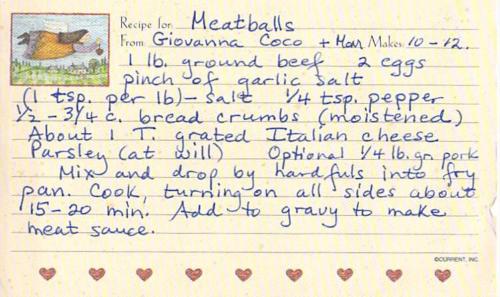 Recipe for Meatballs
From Giovanna Coco + Mom Makes 10-12.
1 lb. ground beef 2 eggs
pinch of garlic salt
(1 tsp. per lb) - salt 1/4 tsp. pepper
1/2 - 3/4 c. bread crumbs (moistened)
About 1 T. grated Italian cheese
Parsley (at will) Optional 1/4 lb. gr. pork
Mix and drop by handfuls into fry
pan. Cook, turning on all sides about
15-20 min. Add to gravy to make
meat sauce.
©CURRENT, INC.